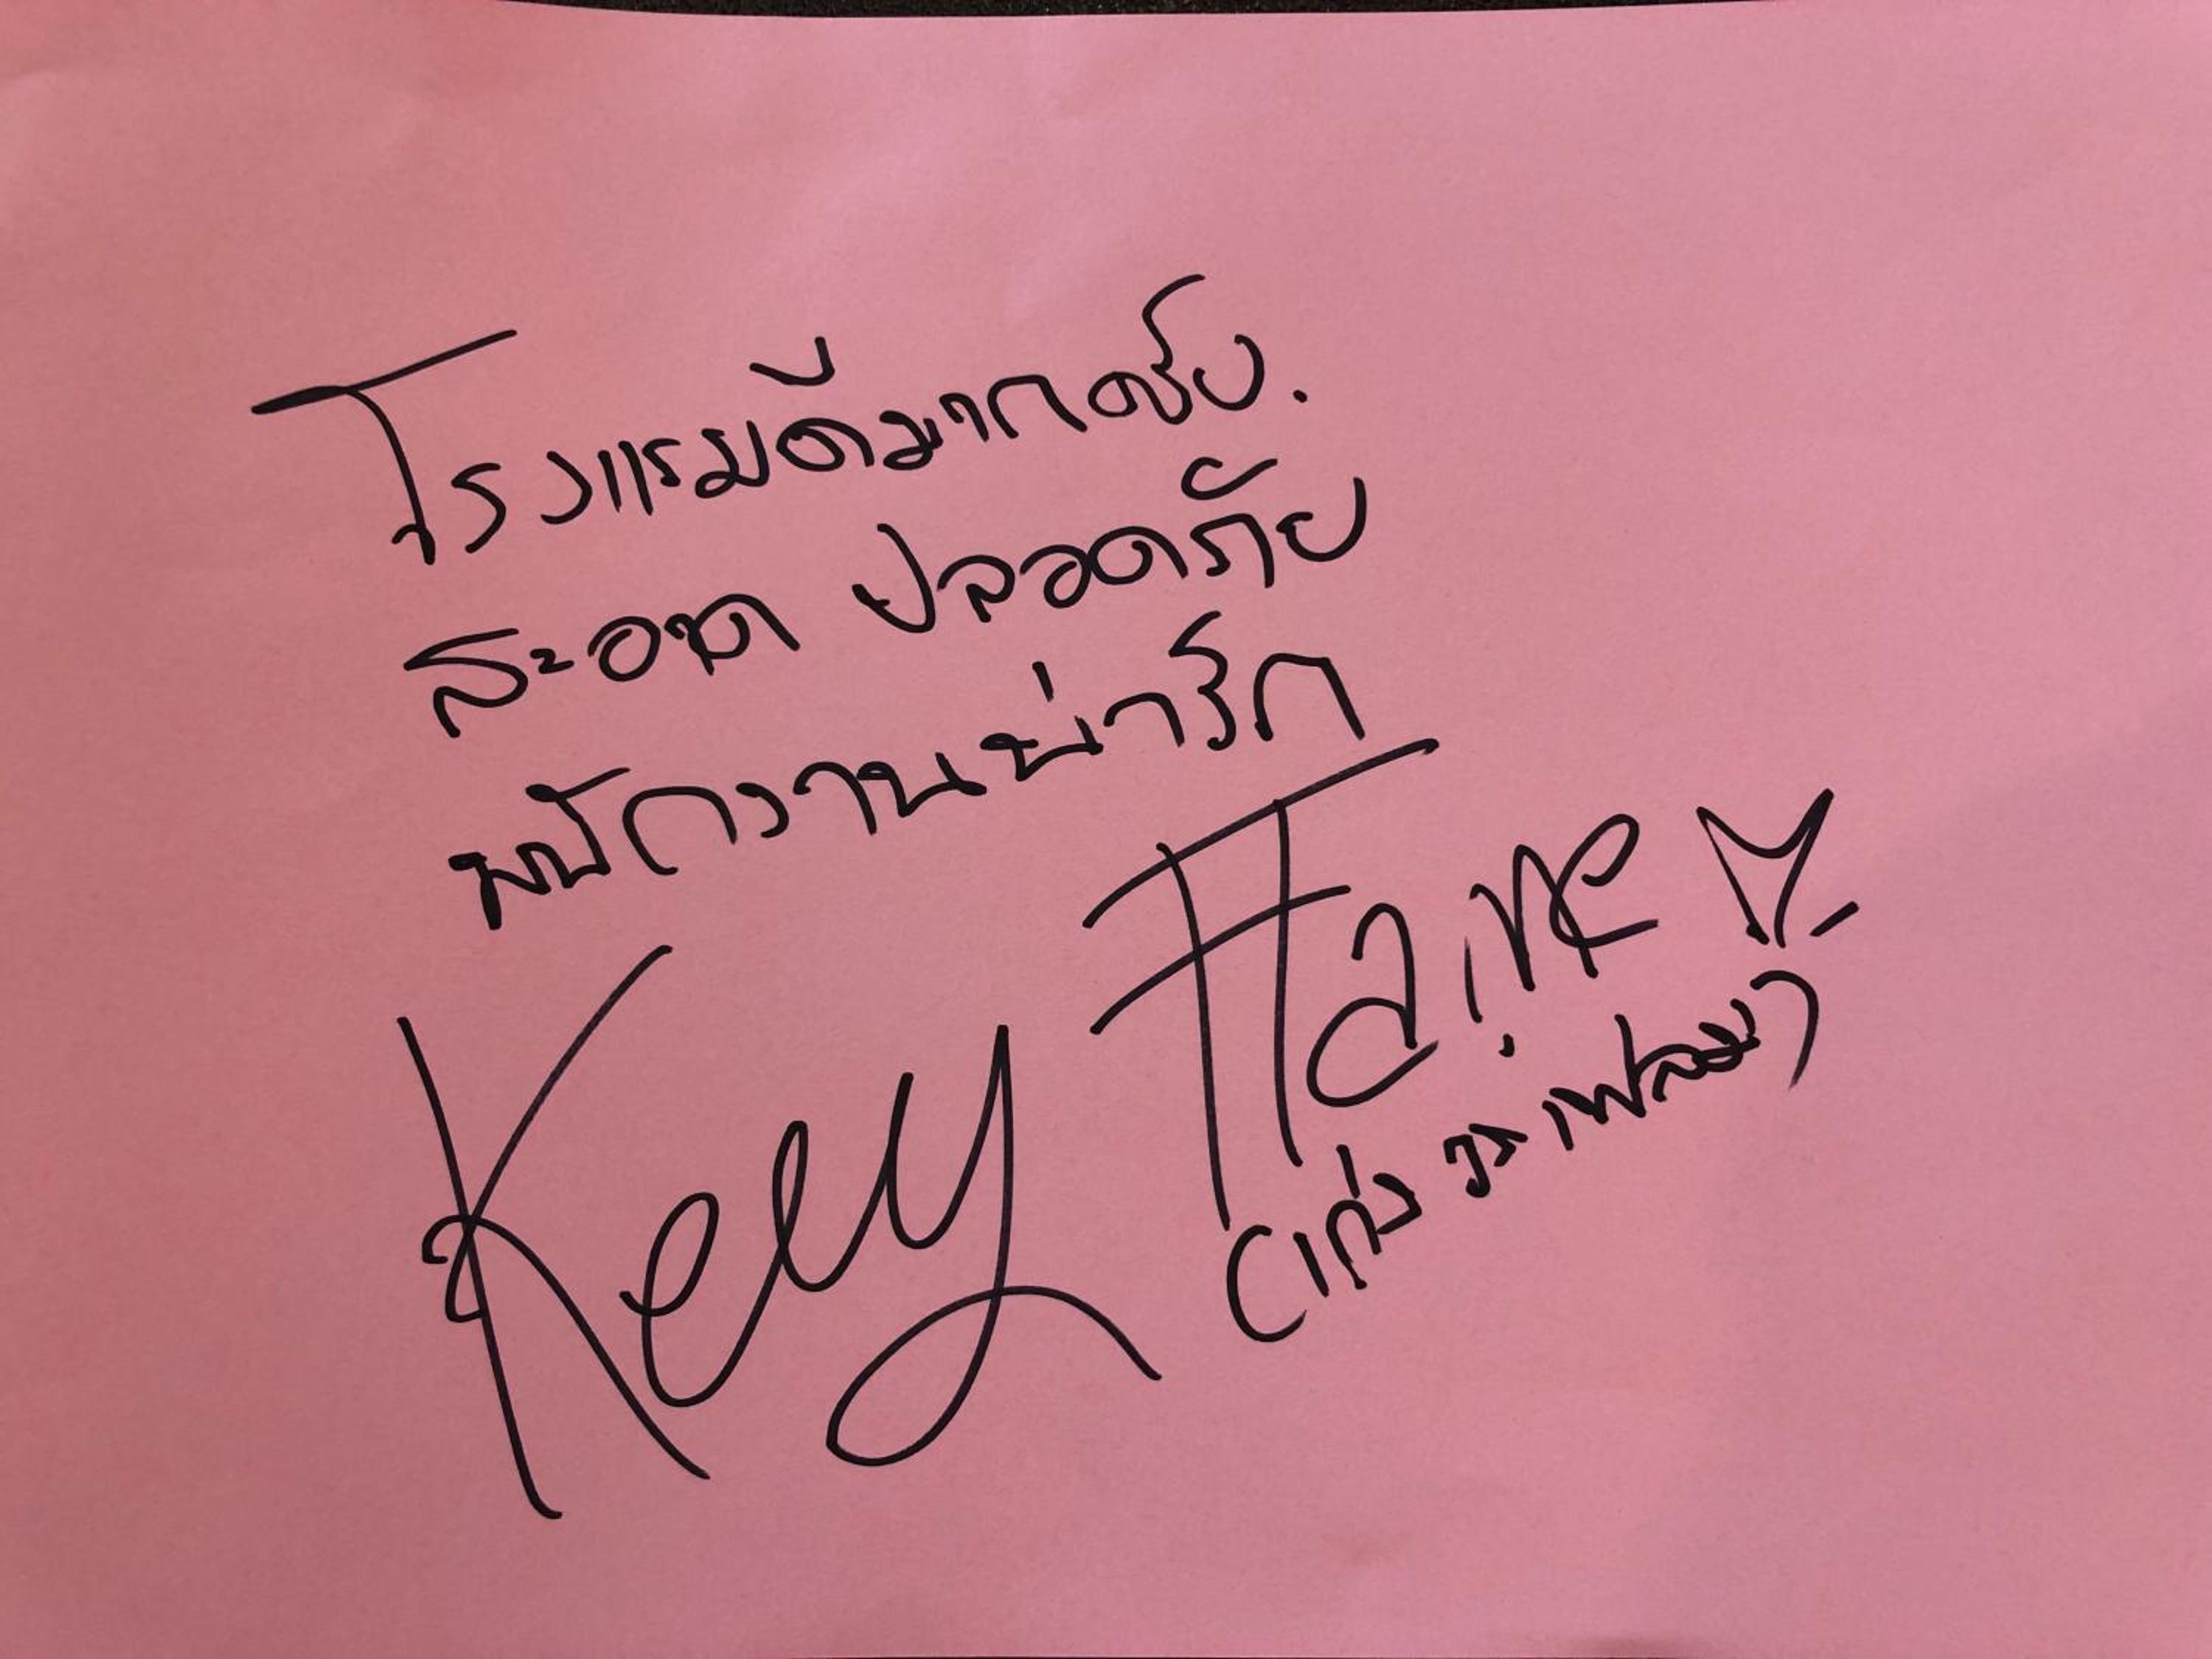 โรงแรมดีมากครับ.
สะอาด ปลอดภัย
พนักงานน่ารัก
Keng
(เก่ง